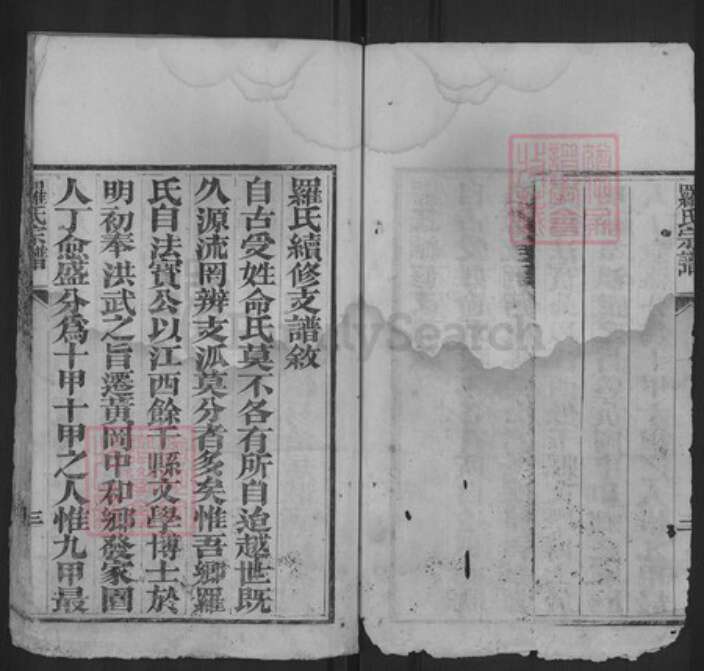 羅氏宗譜
二
羅氏續修支譜敘
自古受姓命氏莫不各有所自迨越世既
久源流罔辨支派莫分者多矣惟吾鄉羅
氏自法寶公以江西餘干縣文學博士於
明初奉洪武之旨遷黃岡中和鄉發家園
人丁愈盛分為十甲十甲之人惟九甲最
羅氏宗譜
三